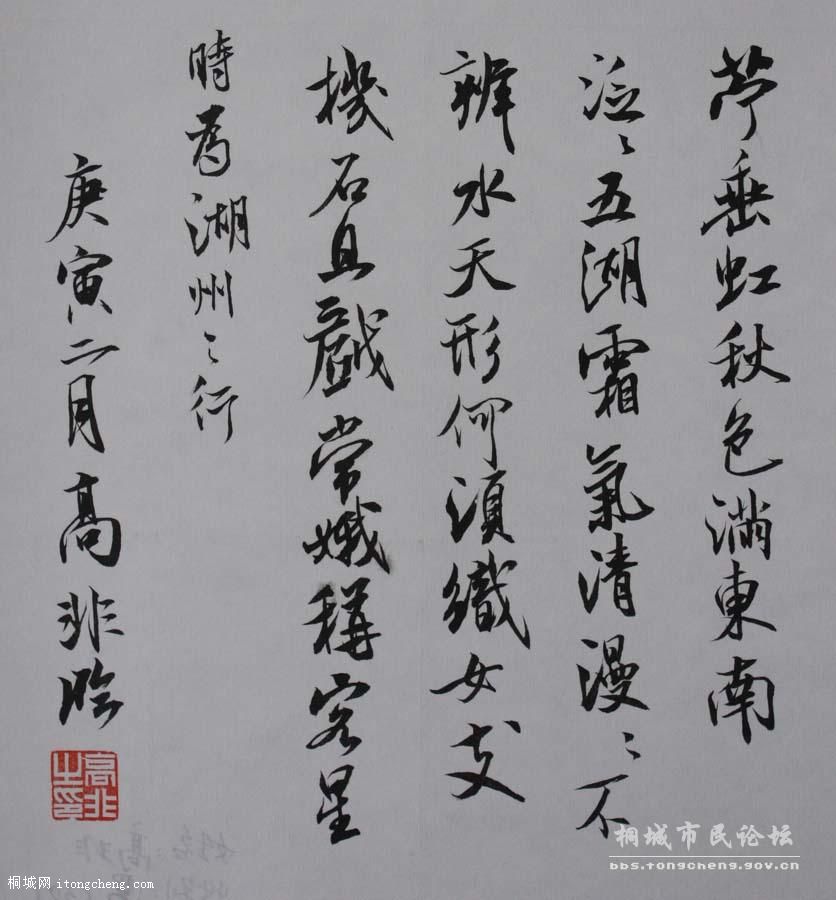 苧垂虹秋色滿東南
泛〻五湖霜氣清漫〻不
辨水天形何須織女支
機石且戲常娥稱客星
時為湖州之行
庚寅二月高非臨
高非之印
姓名:高非
桐城市民论坛
bbs.tongcheng.gov.cn
桐城网 itongcheng.com